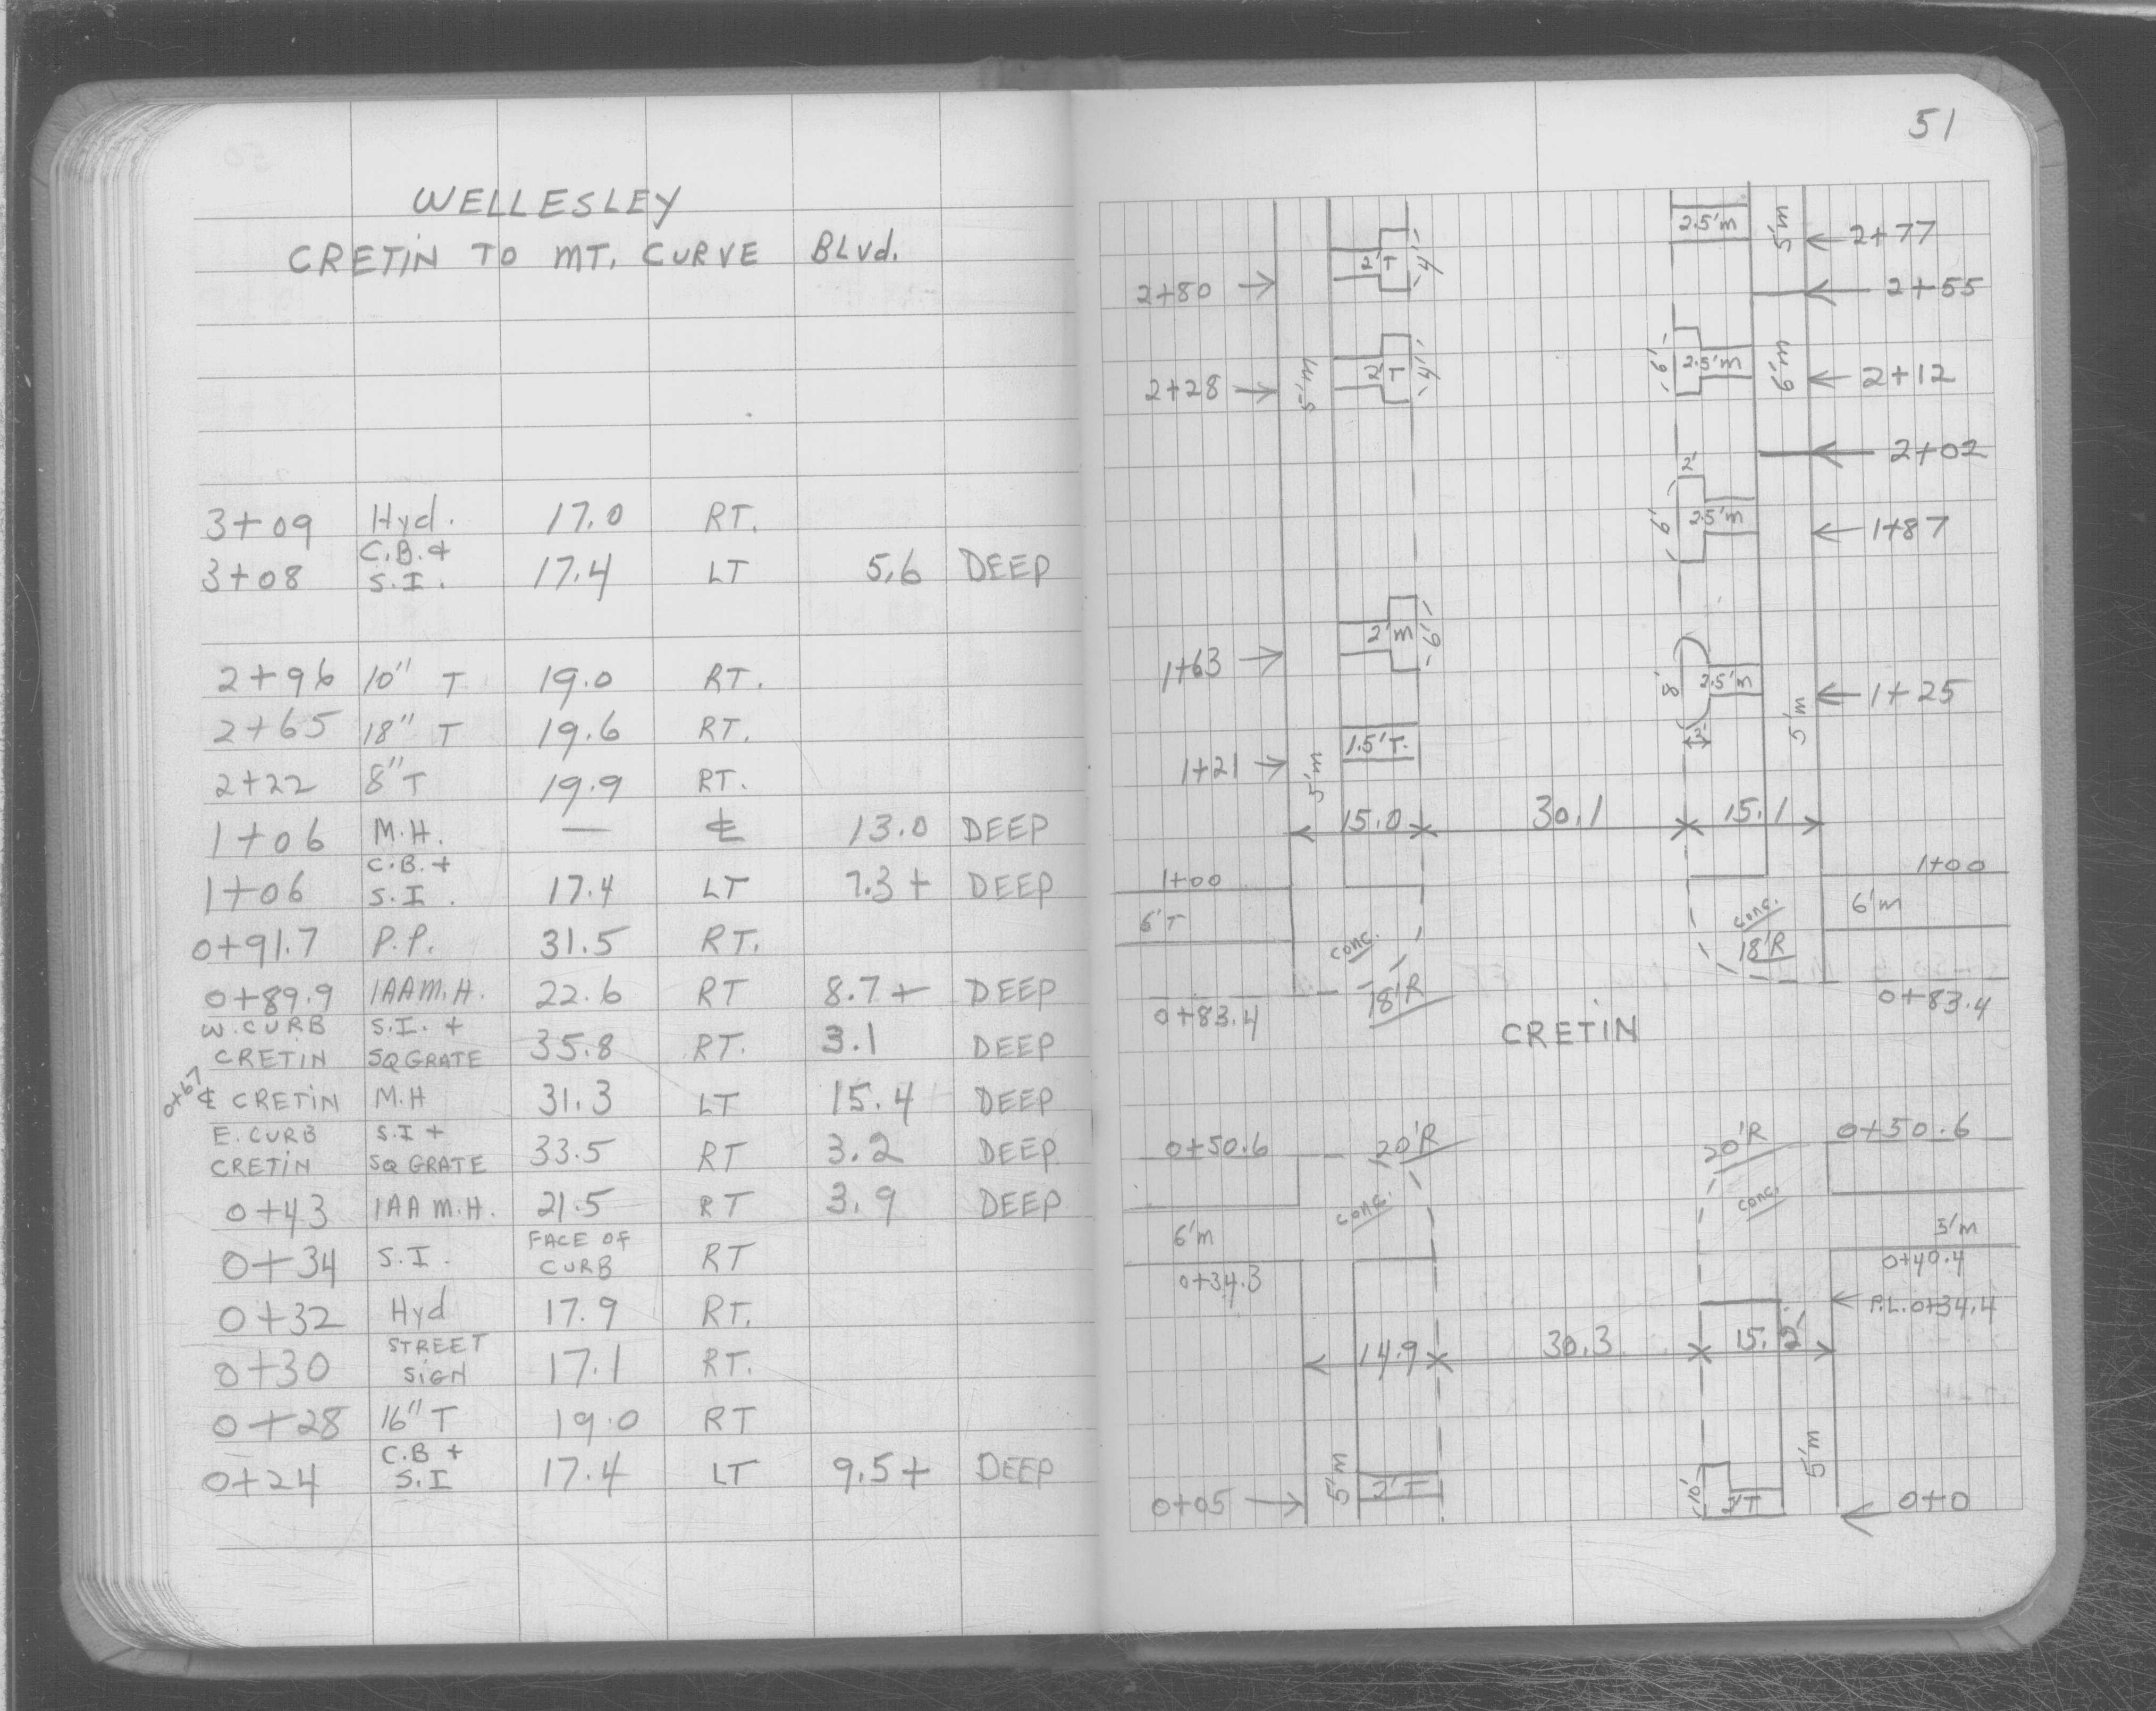 WELLESLEY
CRETIN TO MT. CURVE BLVD.
3+09 Hyd. 17.0 RT.
3+08 C.B. & S.I. 17.4 LT 5.6 DEEP
2+96 10" T 19.0 RT.
2+65 18" T 19.6 RT.
2+22 8" T 19.9 RT.
1+06 M.H. — ℄ 13.0 DEEP
1+06 C.B. + S.I. 17.4 LT 7.3+ DEEP
0+91.7 P.P. 31.5 RT.
0+89.9 1AA M.H. 22.6 RT 8.7+ DEEP
W. CURB CRETIN S.I. + SQ GRATE 35.8 RT. 3.1 DEEP
0+67 ℄ CRETIN M.H 31.3 LT 15.4 DEEP
E. CURB CRETIN S.I + SQ GRATE 33.5 RT 3.2 DEEP
0+43 1AA M.H. 21.5 RT 3.9 DEEP
0+34 S.I. FACE OF CURB RT
0+32 Hyd 17.9 RT.
0+30 STREET SIGN 17.1 RT.
0+28 16" T 19.0 RT
0+24 C.B + S.I 17.4 LT 9.5+ DEEP
51
2.5'm 5'm 2+77
2+80 2'T 4' 2+55
2+28 5'm 2'T 4' 6' 2.5'm 6'm 2+12
2+02
2'
6' 2.5'm 1+87
1+63 2'm 6'
8' 2.5'm 5'm 1+25
2'
1+21 5'm 1.5'T.
15.0 30.1 15.1
1+00 1+00
6'T conc. conc. 6'm
18'R 18'R
0+83.4 0+83.4
CRETIN
0+50.6 20'R 20'R 0+50.6
conc. conc.
6'm 5'm
0+34.3 0+40.4
P.L. 0+34.4
14.9 30.3 15.2
5'm 5'm
0+05 2'T 10' 2'T 0+0